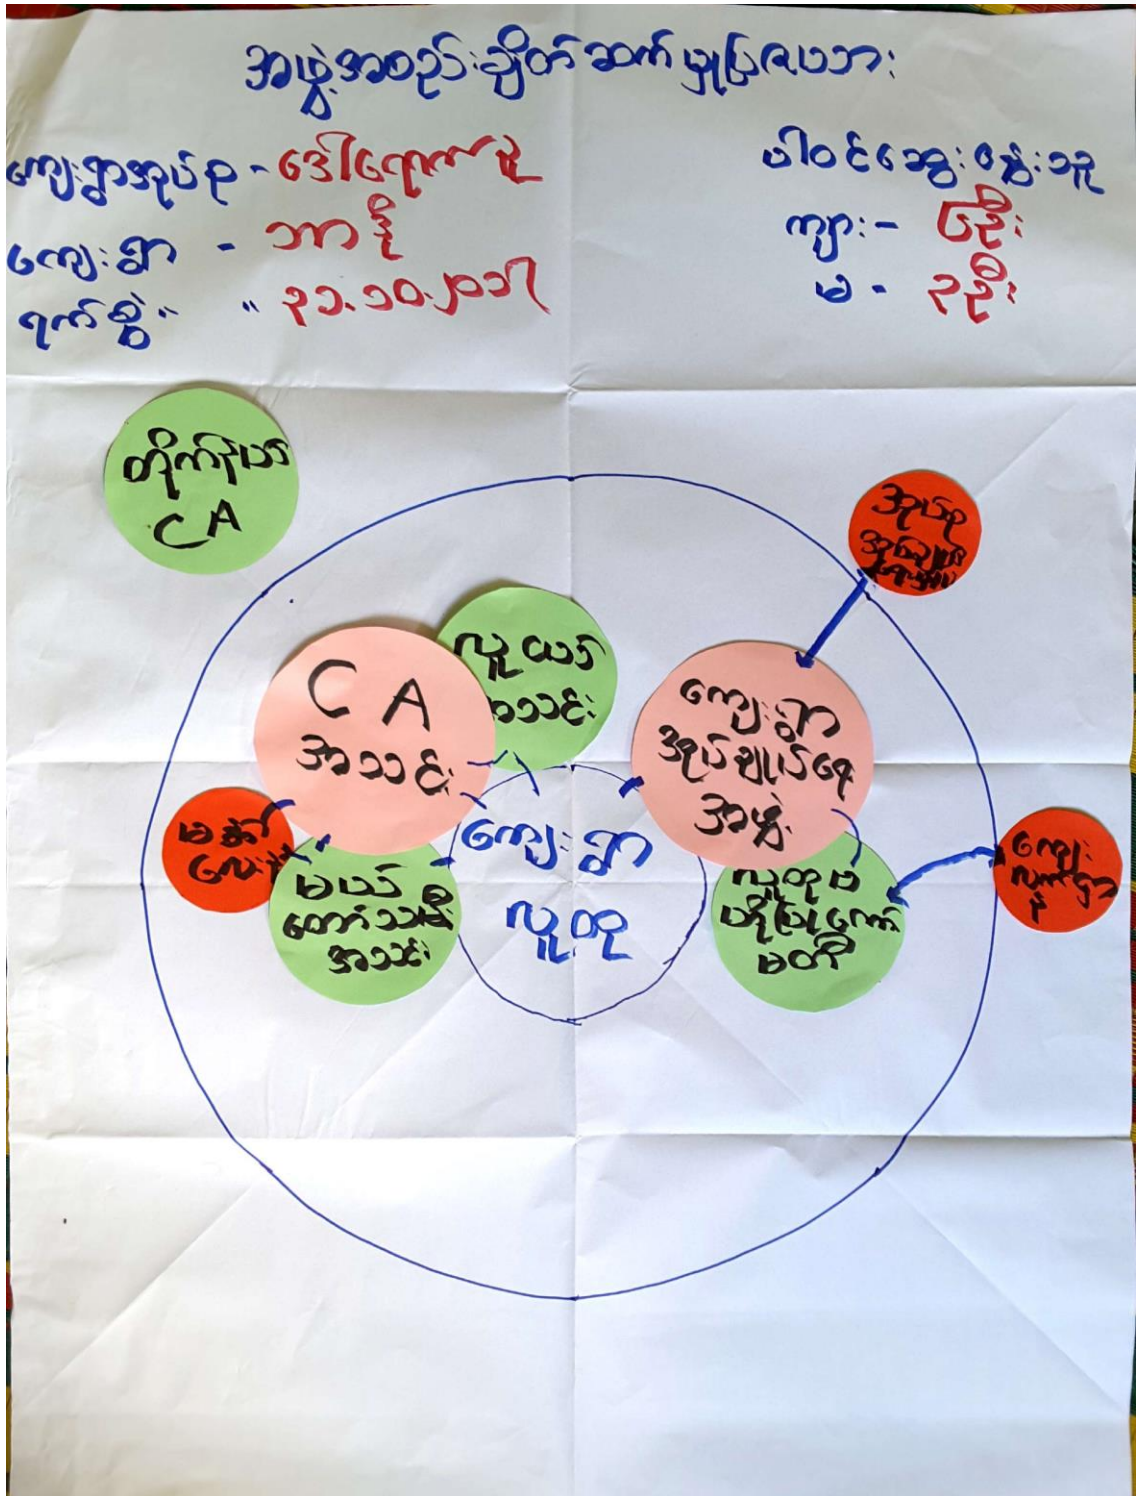 အဖွဲ့အစည်းချိတ်ဆက်မှုပြဇယား
ကျေးရွာအုပ်စု - ဒေါ်ရောက်ခူ
ကျေးရွာ - ဘာဒို
ရက်စွဲ " ၃၁.၁၀.၂၀၁၆
ပါဝင်ဆွေးနွေးသူ
ကျား - ၆ဦး
မ - ၃ဦး
တိုက်နယ်
CA
အုပ်စု
လူငယ်
အသင်း
CA
အသင်း
ကျေးရွာ
အုပ်ချုပ်ရေး
အဖွဲ့
ကျေးရွာ
လူထု
မယ်
တော်သမီး
အသင်း
လူထုဗ
ဟိုပြုကော်
မတီ
ကျေး